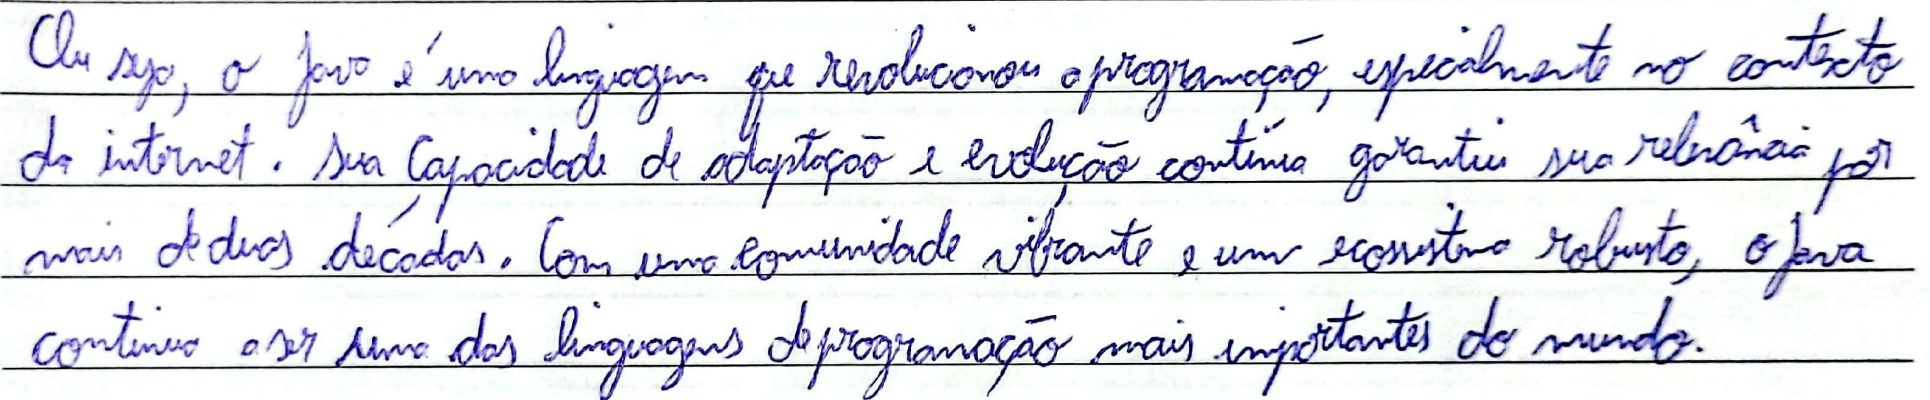 Ou seja, o Java é uma linguagem que revolucionou a programação, especialmente no contexto
da internet. sua Capacidade de adaptação e evolução contínua garantiu sua relevância por
mais de duas décadas. Com uma comunidade vibrante e um ecossistema robusto, o Java
continua a ser uma das linguagens de programação mais importantes do mundo.